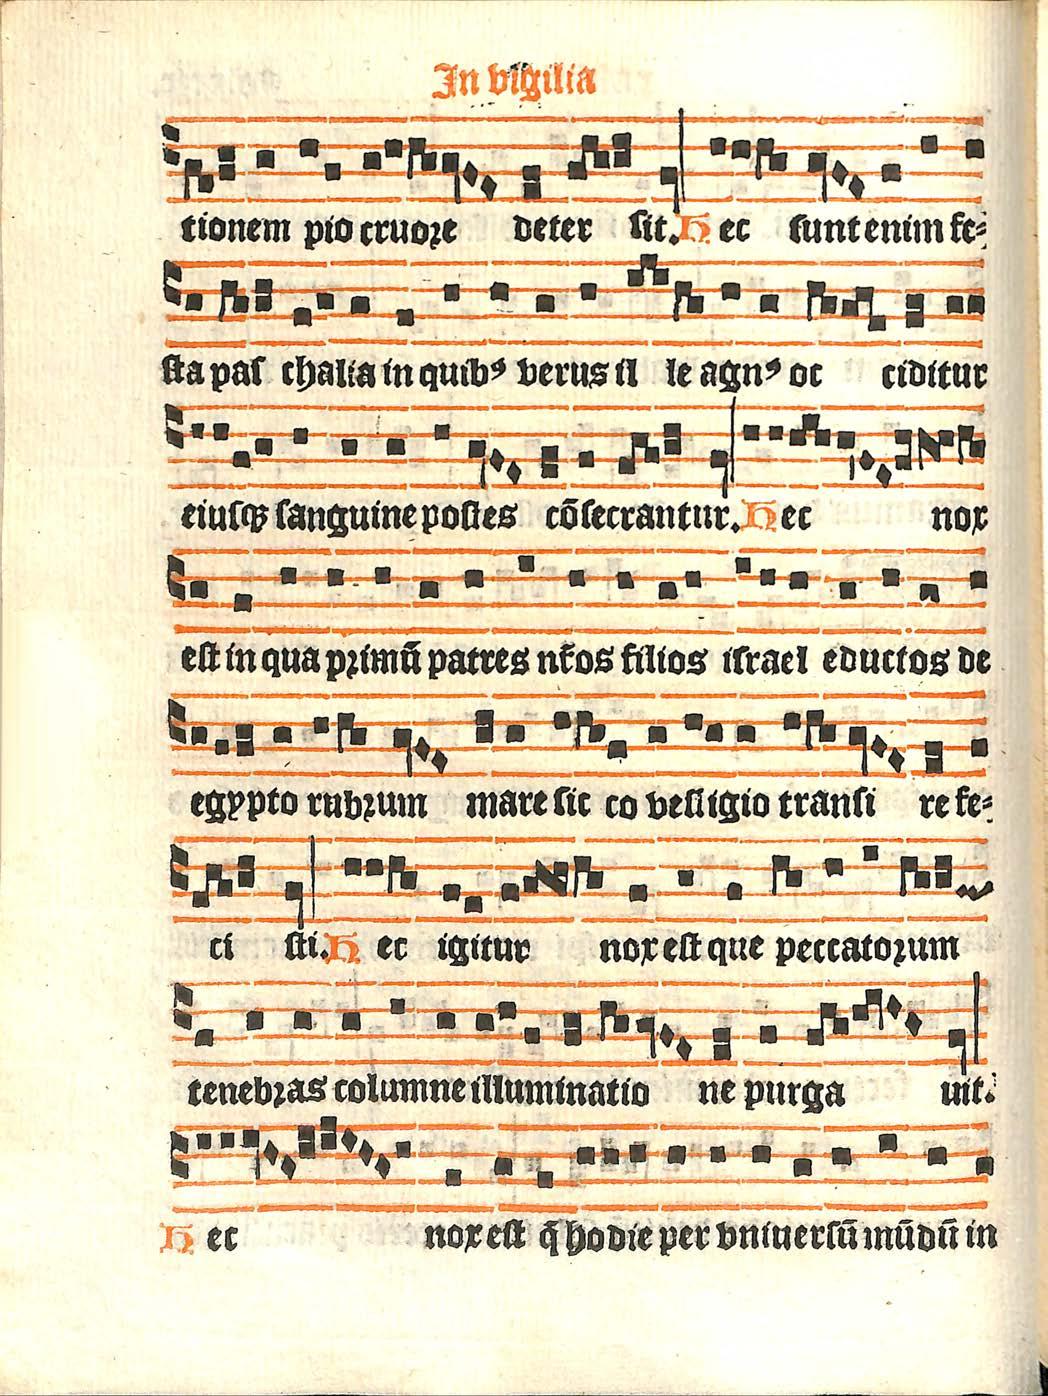 In vigilia
tionem pio cruore deter sit. Hec sunt enim fe⸗
sta pas chalia in quibꝰ verus il le agnꝰ oc ciditur
eiusqꝫ sanguine postes cōsecrantur. Hec nox
est in qua primū patres nr̄os filios israel eductos de
egypto rubrum mare sic co vestigio transi re fe⸗
ci sti. Hec igitur nox est que peccatorum
tenebras columne illuminatio ne purga uit.
Hec nox est q̄ hodie per vniuersū mūdū in